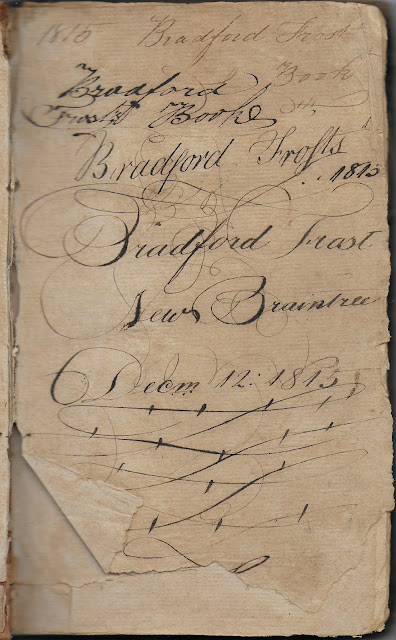 1815 Bradford Frost
Bradford Book
Frosts Booke
Bradford Frosts
1815
Bradford Frast
New Braintree
Decm. 12: 1815